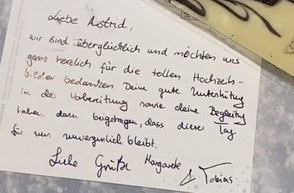 Liebe Astrid,
wir sind überglücklich und möchten uns
ganz herzlich für die tollen Hochzeits-
bilder bedanken. Deine gute Unterstützung
in der Vorbereitung sowie deine Begleitung
haben dazu beigetragen, dass dieser Tag
für uns unvergesslich bleibt.
Liebe Grüße Margarete
& Tobias